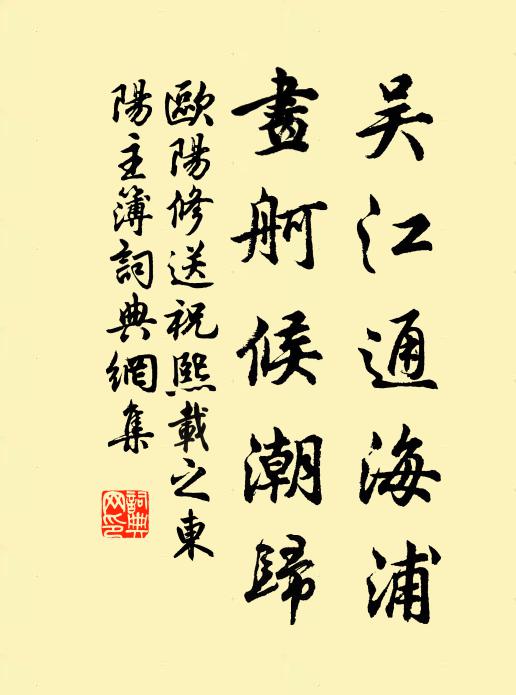 吴江通海浦
畫舸候潮歸
歐陽修送祝熙載之東
陽主簿詞典網集
詞典
网印